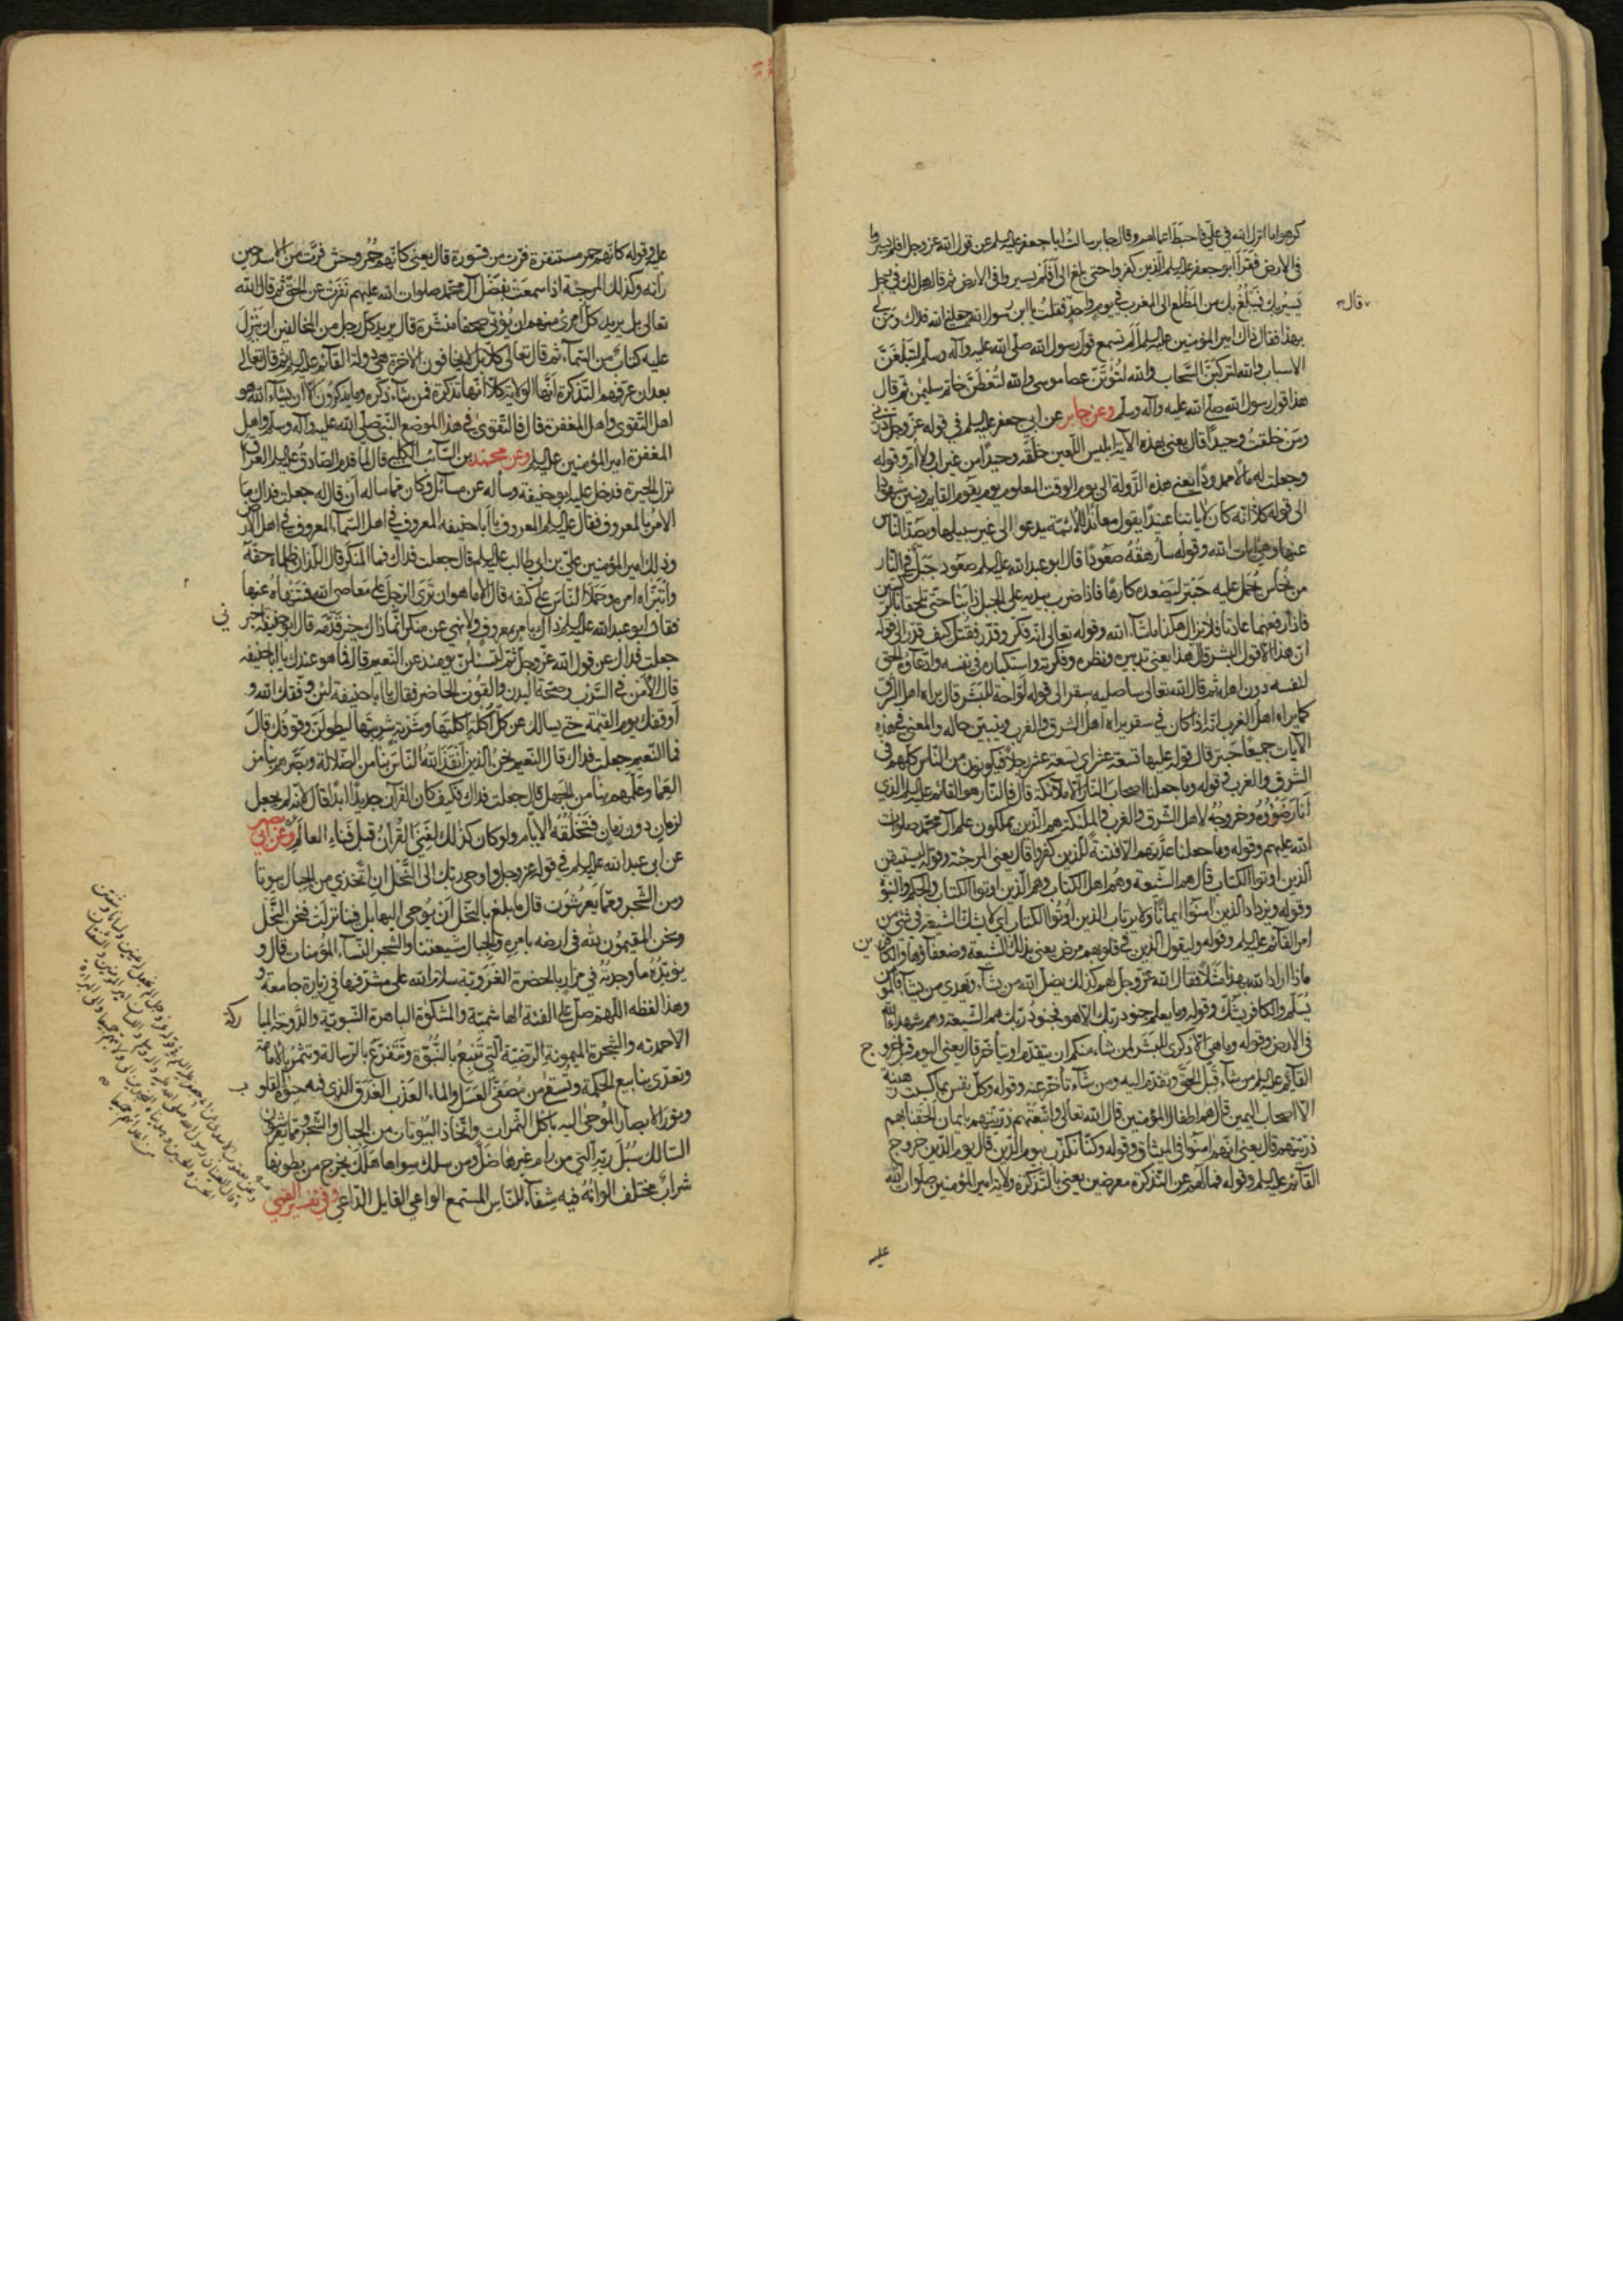 كرهوا ما انزل الله في علي فاحبط اعمالهم وقال جابر سالت ابا جعفر عليه السلم عن قول الله عز وجل افلم يسيروا
في الارض فقرأ ابو جعفر عليه السلم الذين كفروا حتى بلغ الى أفلم يسيروا في الارض ثم قال هل لك في رجل
يسير بك فيبلغ بك من المطلع الى المغرب في يوم واحد فقلت يا ابن رسول الله جعلني الله فداك ومن لي
قال
بهذا فقال ذاك امير المؤمنين عليه السلم ألم تسمع قول رسول الله صلى الله عليه وآله وسلم لتبلغن
الاسباب والله لتركبن السحاب والله لتؤتن عصا موسى والله لتعطن خاتم سليمن ثم قال
هذا قول رسول الله صلى الله عليه وآله وسلم وعن جابر عن ابي جعفر عليه السلم في قوله عز وجل ذرني
ومن خلقت وحيدا قال يعني بهذه الآية ابليس اللعين خلقه وحيدا من غير اب ولا ام وقوله
وجعلت له مالا ممدودا يعني هذه الدولة الى يوم الوقت المعلوم يوم يقوم القايم وبنين شهودا
الى قوله كلا انه كان لاياتنا عنيدا يقول معاندا للائمة يدعوا الى غير سبيلها ويصد الناس
عنها وهي ايات الله وقوله سارهقه صعودا قال ابو عبد الله عليه السلم صعود جبل في النار
من نحاس يحمل عليه حبتر ليصعده كارها فاذا ضرب بيديه على الجبل ذابتا حتى تلحقا بالركبتين
فاذا رفعهما عادتا فلا يزال هكذا ما شاء الله وقوله تعالى انه فكر وقدر فقتل كيف قدر الى قوله
ان هذا الا قول البشر قال هذا يعني تدبيره ونظره وفكرته واستكباره في نفسه وادعاؤه الحق
لنفسه دون اهله ثم قال الله تعالى ساصليه سقر الى قوله لواحة للبشر قال يراه اهل الشرق
كما يراه اهل الغرب انه اذا كان في سقر يراه اهل الشرق والغرب ويتبين حاله والمعني في هذه
الآيات جميعا حبتر قال قوله عليها تسعة عشر اي تسعة عشر رجلا فيكونون من الناس كلهم في
الشرق والغرب وقوله وما جعلنا اصحاب النار الا ملائكة قال فالنار هو القائم عليه السلم الذي
أنار ضوؤه وخروجه لاهل الشرق والغرب والملئكة هم الذين يملكون علم آل محمد صلوات
الله عليهم وقوله وما جعلنا عدتهم الا فتنة للذين كفروا قال يعني المرجئة وقوله ليستيقن
الذين اوتوا الكتاب قال هم الشيعة وهم اهل الكتاب وهم الذين اوتوا الكتاب والحكم والنبوة
وقوله ويزداد الذين امنوا ايمانا ولا يرتاب الذين اوتوا الكتاب اي لا يشك الشيعة في شئ من
امر القائم عليه السلم وقوله وليقول الذين في قلوبهم مرض يعني بذلك الشيعة وضعفاؤها والكافرين
ماذا اراد الله بهذا مثلا فقال الله عز وجل لهم كذلك يضل الله من يشاء ويهدي من يشاء فالمؤمن
يسلم والكافر يشك وقوله وما يعلم جنود ربك الا هو فجنود ربك هم الشيعة وهم شهداء الله
في الارض وقوله وما هي الا ذكرى للبشر لمن شاء منكم ان يتقدم او يتأخر قال يعني اليوم قبل خروج
القائم عليه السلم من شاء قبل الحق وتقدم اليه ومن شاء تأخر عنه وقوله وكل نفس بما كسبت رهينة
الا اصحاب اليمين قال هم اطفال المؤمنين قال الله تعالى واتبعتهم ذريتهم بايمان الحقنا بهم
ذريتهم قال يعني انهم امنوا في الميثاق وقوله وكنا نكذب بيوم الدين قال يوم الدين خروج
القائم عليه السلم وقوله فما لهم عن التذكرة معرضين يعني بالتذكرة ولاية امير المؤمنين صلوات الله
عليه
عليه وقوله كانهم حمر مستنفرة فرت من قسورة قال يعني كانهم حمر وحش فرت من الاسد حين
رأته وكذلك المرجئة اذا سمعت بفضل آل محمد صلوات الله عليهم نفرت عن الحق ثم قال الله
تعالى بل يريد كل امرئ منهم ان يؤتى صحفا منشرة قال يريد كل رجل من المخالفين ان ينزل
عليه كتاب من السماء ثم قال تعالى كلا بل لا يخافون الاخرة هي دولة القائم عليه السلم ثم قال تعالى
بعد ان عرفهم التذكرة انها الولاية كلا انها تذكرة فمن شاء ذكره وما يذكرون الا ان يشاء الله هو
اهل التقوى واهل المغفرة قال فالتقوى في هذا الموضع النبي صلى الله عليه وآله وسلم واهل
المغفرة امير المؤمنين عليه السلم وعن محمد بن السائب الكلبي قال لما قدم الصادق عليه السلم العراق
نزل الحيرة فدخل عليه ابو حنيفة وسأله عن مسائل وكان مما ساله ان قال له جعلت فداك ما
الامر بالمعروف فقال عليه السلم المعروف يا ابا حنيفه المعروف في اهل السماء المعروف في اهل الارض
وذلك امير المؤمنين علي بن ابي طالب عليه السلم قال جعلت فداك فما المنكر قال اللذان ظلماه حقه
وابتزاه امره وحملا الناس على كتفه قال الا ما هو ان ترى الرجل على معاصي الله فتنهاه عنها
فقال ابو عبد الله عليه السلم ليس ذاك بامر بمعروف ولا نهي عن منكر انما ذاك خير قدمه قال ابو حنيفه اخبرني
جعلت فداك عن قول الله عز وجل ثم لتسئلن يومئذ عن النعيم قال فما هو عندك يا ابا حنيفه
قال الأمن في السرب وصحة البدن والقوت الحاضر فقال يا ابا حنيفة لئن وقفك الله و
أوقفك يوم القيمة حتى يسالك عن كل اكلة اكلتها وشربة شربتها ليطولن وقوفك قال
فما النعيم جعلت فداك قال النعيم نحن الذين أنقذ الله الناس بنا من الضلالة وبصرهم بنا من
العما وعلمهم بنا من الجهل قال جعلت فداك فكيف كان القرآن جديدا ابدا قال لانه لم يجعل
لزمان دون زمان فتخلقه الايام ولو كان كذلك لفني القرآن قبل فناء العالم وعن ابي بصير
عن ابي عبد الله عليه السلم في قوله عز وجل واوحى ربك الى النحل ان اتخذي من الجبال بيوتا
ومن الشجر ومما يعرشون قال ما بلغ بالنحل أن يوحى اليها بل فينا نزلت فنحن النحل
ونحن المقيمون لله في ارضه بامره والجبال شيعتنا والشجر النساء المؤمنات قال و
يؤيده ما وجدته في مزار بالحضرة الغروية سلام الله على مشرفها في زيارة جامعة و
هذا لفظه اللهم صل على الفئة الهاشمية والمشكوة الباهرة النبوية والدوحة المباركة
الاحمديه والشجرة الميمونة الرضية التي تنبع بالنبوة وتتفرع بالرسالة وتثمر بالامامة
وتغذي ينابيع الحكمة وتسقى من مصفى العسل والماء العذب الغدق الذي فيه حيوة القلوب
ونور الابصار الموحى اليه باكل الثمرات واتخاذ البيوتات من الجبال والشجر ومما يعرشون
السالك سبل ربه التي من رام غيرها ضل ومن سلك سواها هلك يخرج من بطونها
شراب مختلف الوانه فيه شفاء للناس المستمع الواعي القايل الداعي وفي تفسير القمي